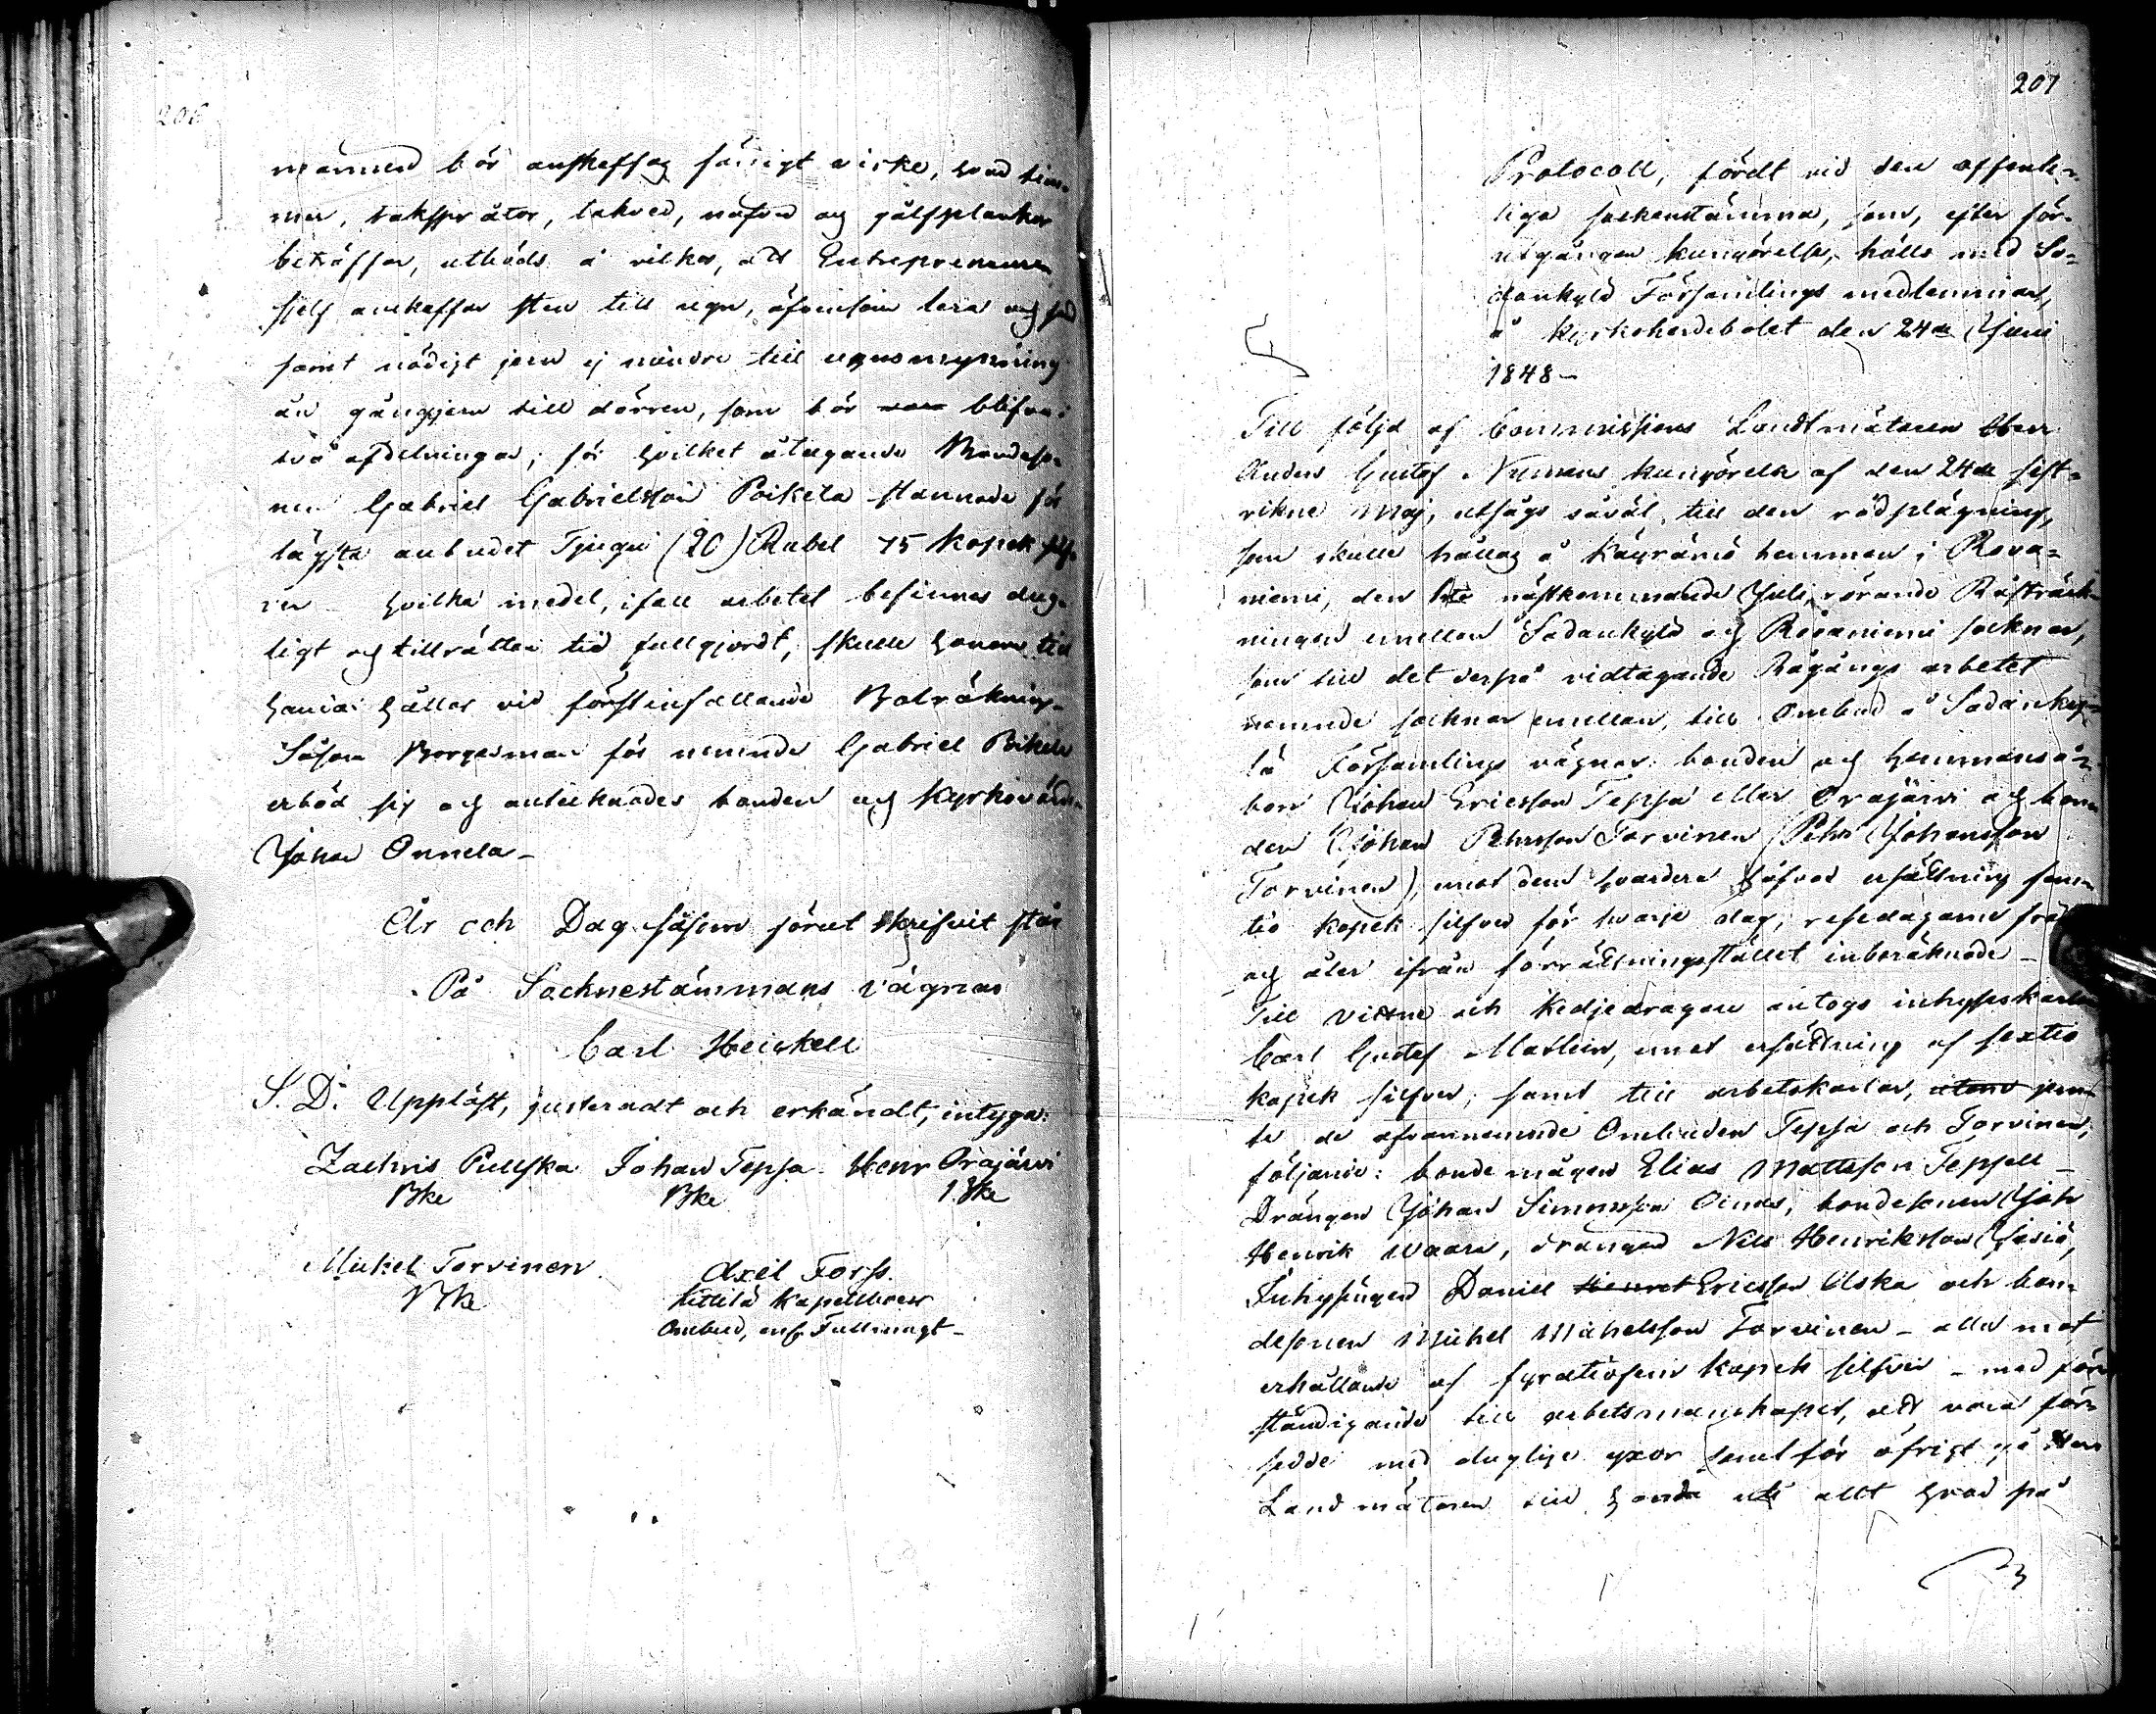 206
männen bör anskaffas färdigt virke, hvad tim-
mer, takspråtor, takved, näfver och gålfplankor
beträffar, utböds å vilkor, att Entreprenuren
sjelf anskaffar sten till ugn, äfvensom lera och sand
samt nödigt jern ej mindre till ugnsmynning
än gångjern till dörren, som bör blifva i
två afdelningar; för hvilket åtagande Bondeso-
nen Gabriel Gabrielsson Poikela stannade för
lägsta anbudet Tjugu (20) Rubel 75 kopek silf-
ver hvilka medel, ifall arbetet befinnes dug-
ligt och till rätter tid fullgjordt, skulle honom till
handa hållas vid först infallande Bolräkning.
Såsom Borgesman för nemnde Gabriel Poikela
erböd sig och antecknades bonden och Kyrkovärden
Johan Onnela –
År och Dag såsom förut skrifvit står
På Socknestämmans vägnar
Carl Heickell
S. D. Uppläst, justeradt och erkändt, intyga:
Zachris Pulska Johan Tepsa Henr Orajärvi
Bke Bke Bke
Mickel Torvinen Axel Forss.
Bke Kittilä Kapellboers
Ombud, enl. Fullmagt –
207
Protocoll, fördt vid den offent-
liga sockenstämma, som, efter för-
utgången kungörelse, hålls med So-
dankylä Församlings medlemmar,
å kyrkoherdebolet den 24de Juni
1848 –
Till följd af Commissions Landtmätaren Herr
Anders Gustaf Nymans kungörelse af den 24de sist-
vikne Maj, utsågs såväl till den rådplägning,
som skulle hållas å Käyrämö hemman i Rova-
niemi, den 1ste nästkommande Juli, rörande Råsträck-
ningen emellan Sodankylä och Rovaniemi socknar,
som till det derpå vidtagande Rågångs arbetet
nemnde socknar emellan, till Ombud å Sodanky-
lä Församlings vägnar bonden och hemmanså-
bon Johan Ericsson Tepsa eller Orajärvi och bon-
den Johan Pehrsson Torvinen (Pehr Johansson
Torvinen), emot dem hvardera häfvas ersättning fem-
tio kopek silfver för hvarje dag, resedagarne från
och åter ifrån förrättningsstället inberäknade –
Till vittne och Kedjedragare antogs inhyseskarlen
Carl Gustaf Marlin, emot ersättning af sextio
kopek silfver; samt till arbetskarlar, utom jem-
te de ofvannemnde Ombuden Tepsa och Torvinen,
följande: bonde mågen Elias Mattsson Tepsell –
Drängen Johan Simonsson Oinas, bondesonen Joh
Henrik Waara, drängen Nils Henriksson Jesiö,
Inhysingen Daniel Ericsson Alska och bon-
desonen Michel Michelsson Torvinen – alla mot
erhållande af fyratiofem kopek silfver – med för-
ständigande till arbetsmanskapet, att vara för-
sedde med duglige yxor samt för öfrigt gå Herr
Landmätaren till handa uti allt hvad på